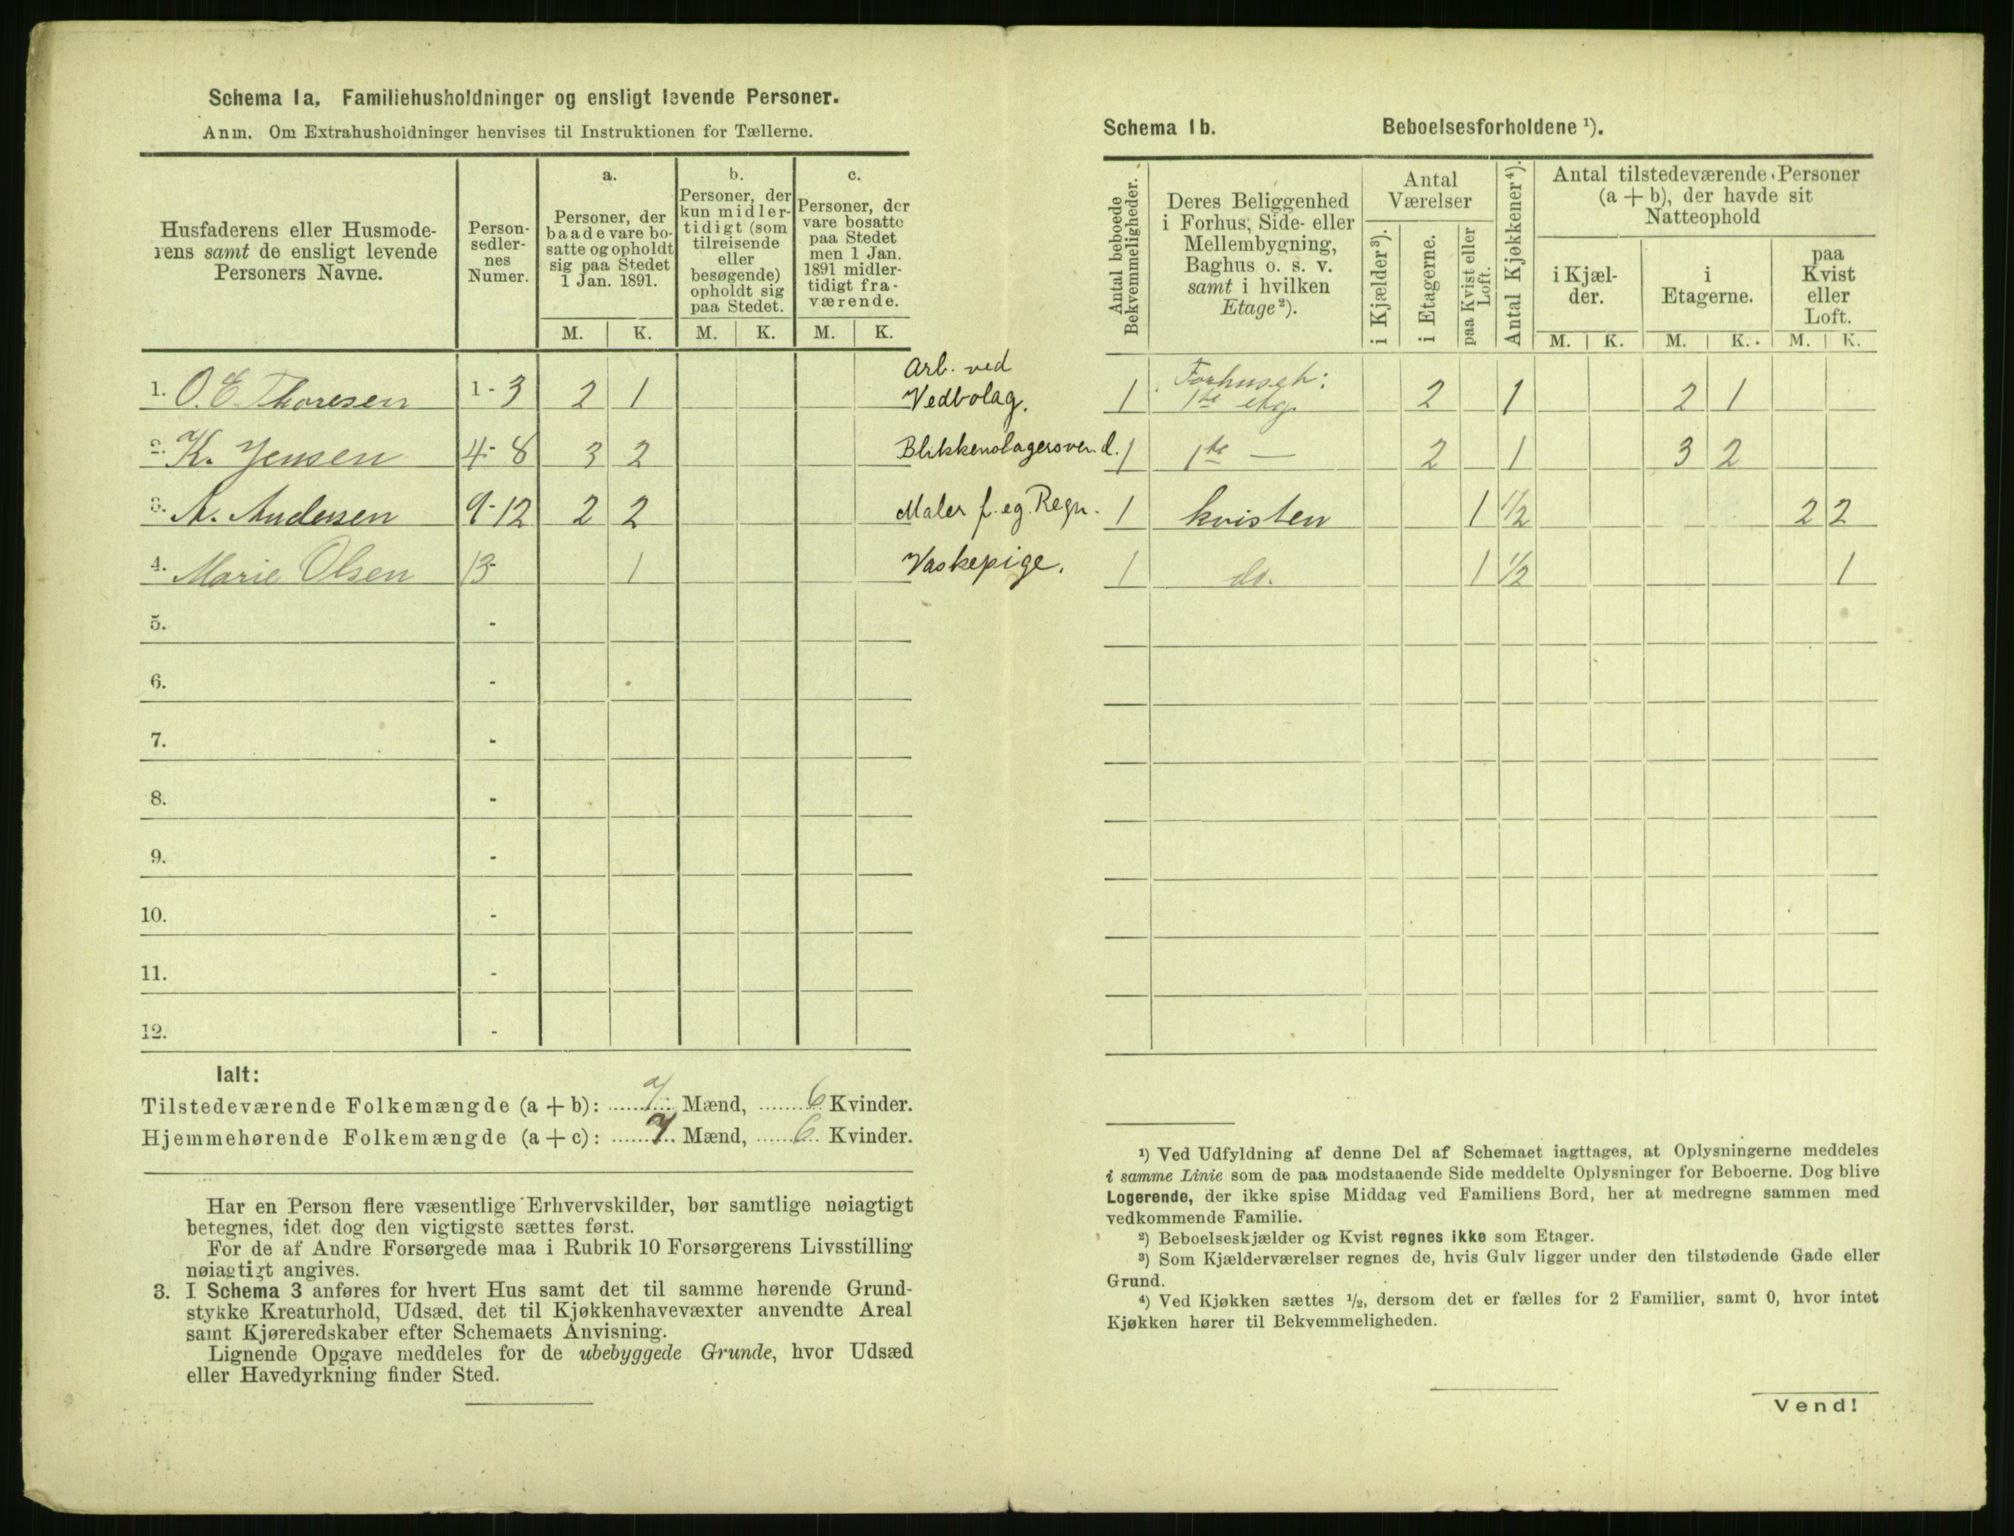 Schema 1a. Familiehusholdninger og ensligt levende Personer.
Anm. Om Extrahusholdninger henvises til Instruktionen for Tællerne.
Husfaderens eller Husmode-
rens samt de ensligt levende
Personers Navne.
Person-
sedler-
nes
Numer.
a.
Personer, der
baade vare bo-
satte og opholdt
sig paa Stedet
1 Jan. 1891.
b.
Personer, der
kun midler-
tidigt (som
tilreisende
eller
besøgende)
opholdt sig
paa Stedet.
c.
Personer, der
vare bosatte
paa Stedet
men 1 Jan.
1891 midler-
tidigt fra-
værende.
M. K. M. K. M. K.
1. O. E. Thoresen 1-3 2 1 Arb. ved
Vedbolag.
2. K. Jensen 4-8 3 2 Blikkenslagersvend.
3. A. Andersen 9-12 2 2 Maler f. eg. Regn.
4. Marie Olsen 13- 1 Vaskepige.
5. -
6. -
7. -
8. -
9. -
10. -
11. -
12. -
Ialt:
Tilstedeværende Folkemængde (a + b): 7 Mænd, 6 Kvinder.
Hjemmehørende Folkemængde (a + c): 7 Mænd, 6 Kvinder.
Har en Person flere væsentlige Erhvervskilder, bør samtlige nøiagtigt
betegnes, idet dog den vigtigste sættes først.
For de af Andre Forsørgede maa i Rubrik 10 Forsørgerens Livsstilling
nøiagtigt angives.
3. I Schema 3 anføres for hvert Hus samt det til samme hørende Grund-
stykke Kreaturhold, Udsæd, det til Kjøkkenhavevæxter anvendte Areal
samt Kjøreredskaber efter Schemaets Anvisning.
Lignende Opgave meddeles for de ubebyggede Grunde, hvor Udsæd
eller Havedyrkning finder Sted.
Schema 1b. Beboelsesforholdene ¹).
Antal beboede
Bekvemmeligheder.
Deres Beliggenhed
i Forhus, Side- eller
Mellembygning,
Baghus o. s. v.
samt i hvilken
Etage²).
Antal
Værelser
i Kjælder³).
i Etagerne.
paa Kvist eller
Loft.
Antal Kjøkkener⁴).
Antal tilstedeværende Personer
(a + b), der havde sit
Natteophold
i Kjæl-
der.
i
Etagerne.
paa
Kvist
eller
Loft.
M. K. M. K. M. K.
1 Forhuset: 1te etg. 2 1 2 1
1 1te — 2 1 3 2
1 kvisten 1 1/2 2 2
1 do. 1 1/2 1
¹) Ved Udfyldning af denne Del af Schemaet iagttages, at Oplysningerne meddeles
i samme Linie som de paa modstaaende Side meddelte Oplysninger for Beboerne. Dog blive
Logerende, der ikke spise Middag ved Familiens Bord, her at medregne sammen med
vedkommende Familie.
²) Beboelseskjælder og Kvist regnes ikke som Etager.
³) Som Kjælderværelser regnes de, hvis Gulv ligger under den tilstødende Gade eller
Grund.
⁴) Ved Kjøkken sættes ¹/₂, dersom det er fælles for 2 Familier, samt 0, hvor intet
Kjøkken hører til Bekvemmeligheden.
Vend!